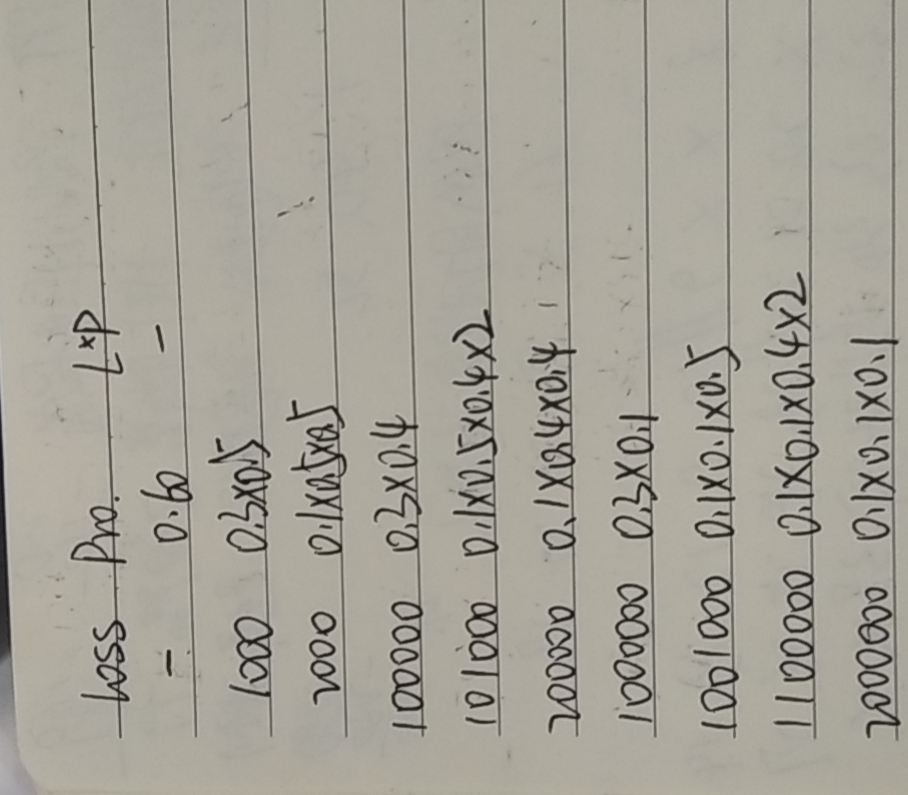 Loss Pro. L×P
- 0.60 -
1000 0.3×0.5
2000 0.1×0.5×0.5
100000 0.3×0.4
101000 0.1×0.5×0.4×2
200000 0.1×0.4×0.4
1000000 0.3×0.1
1001000 0.1×0.1×0.5
1100000 0.1×0.1×0.4×2
2000000 0.1×0.1×0.1